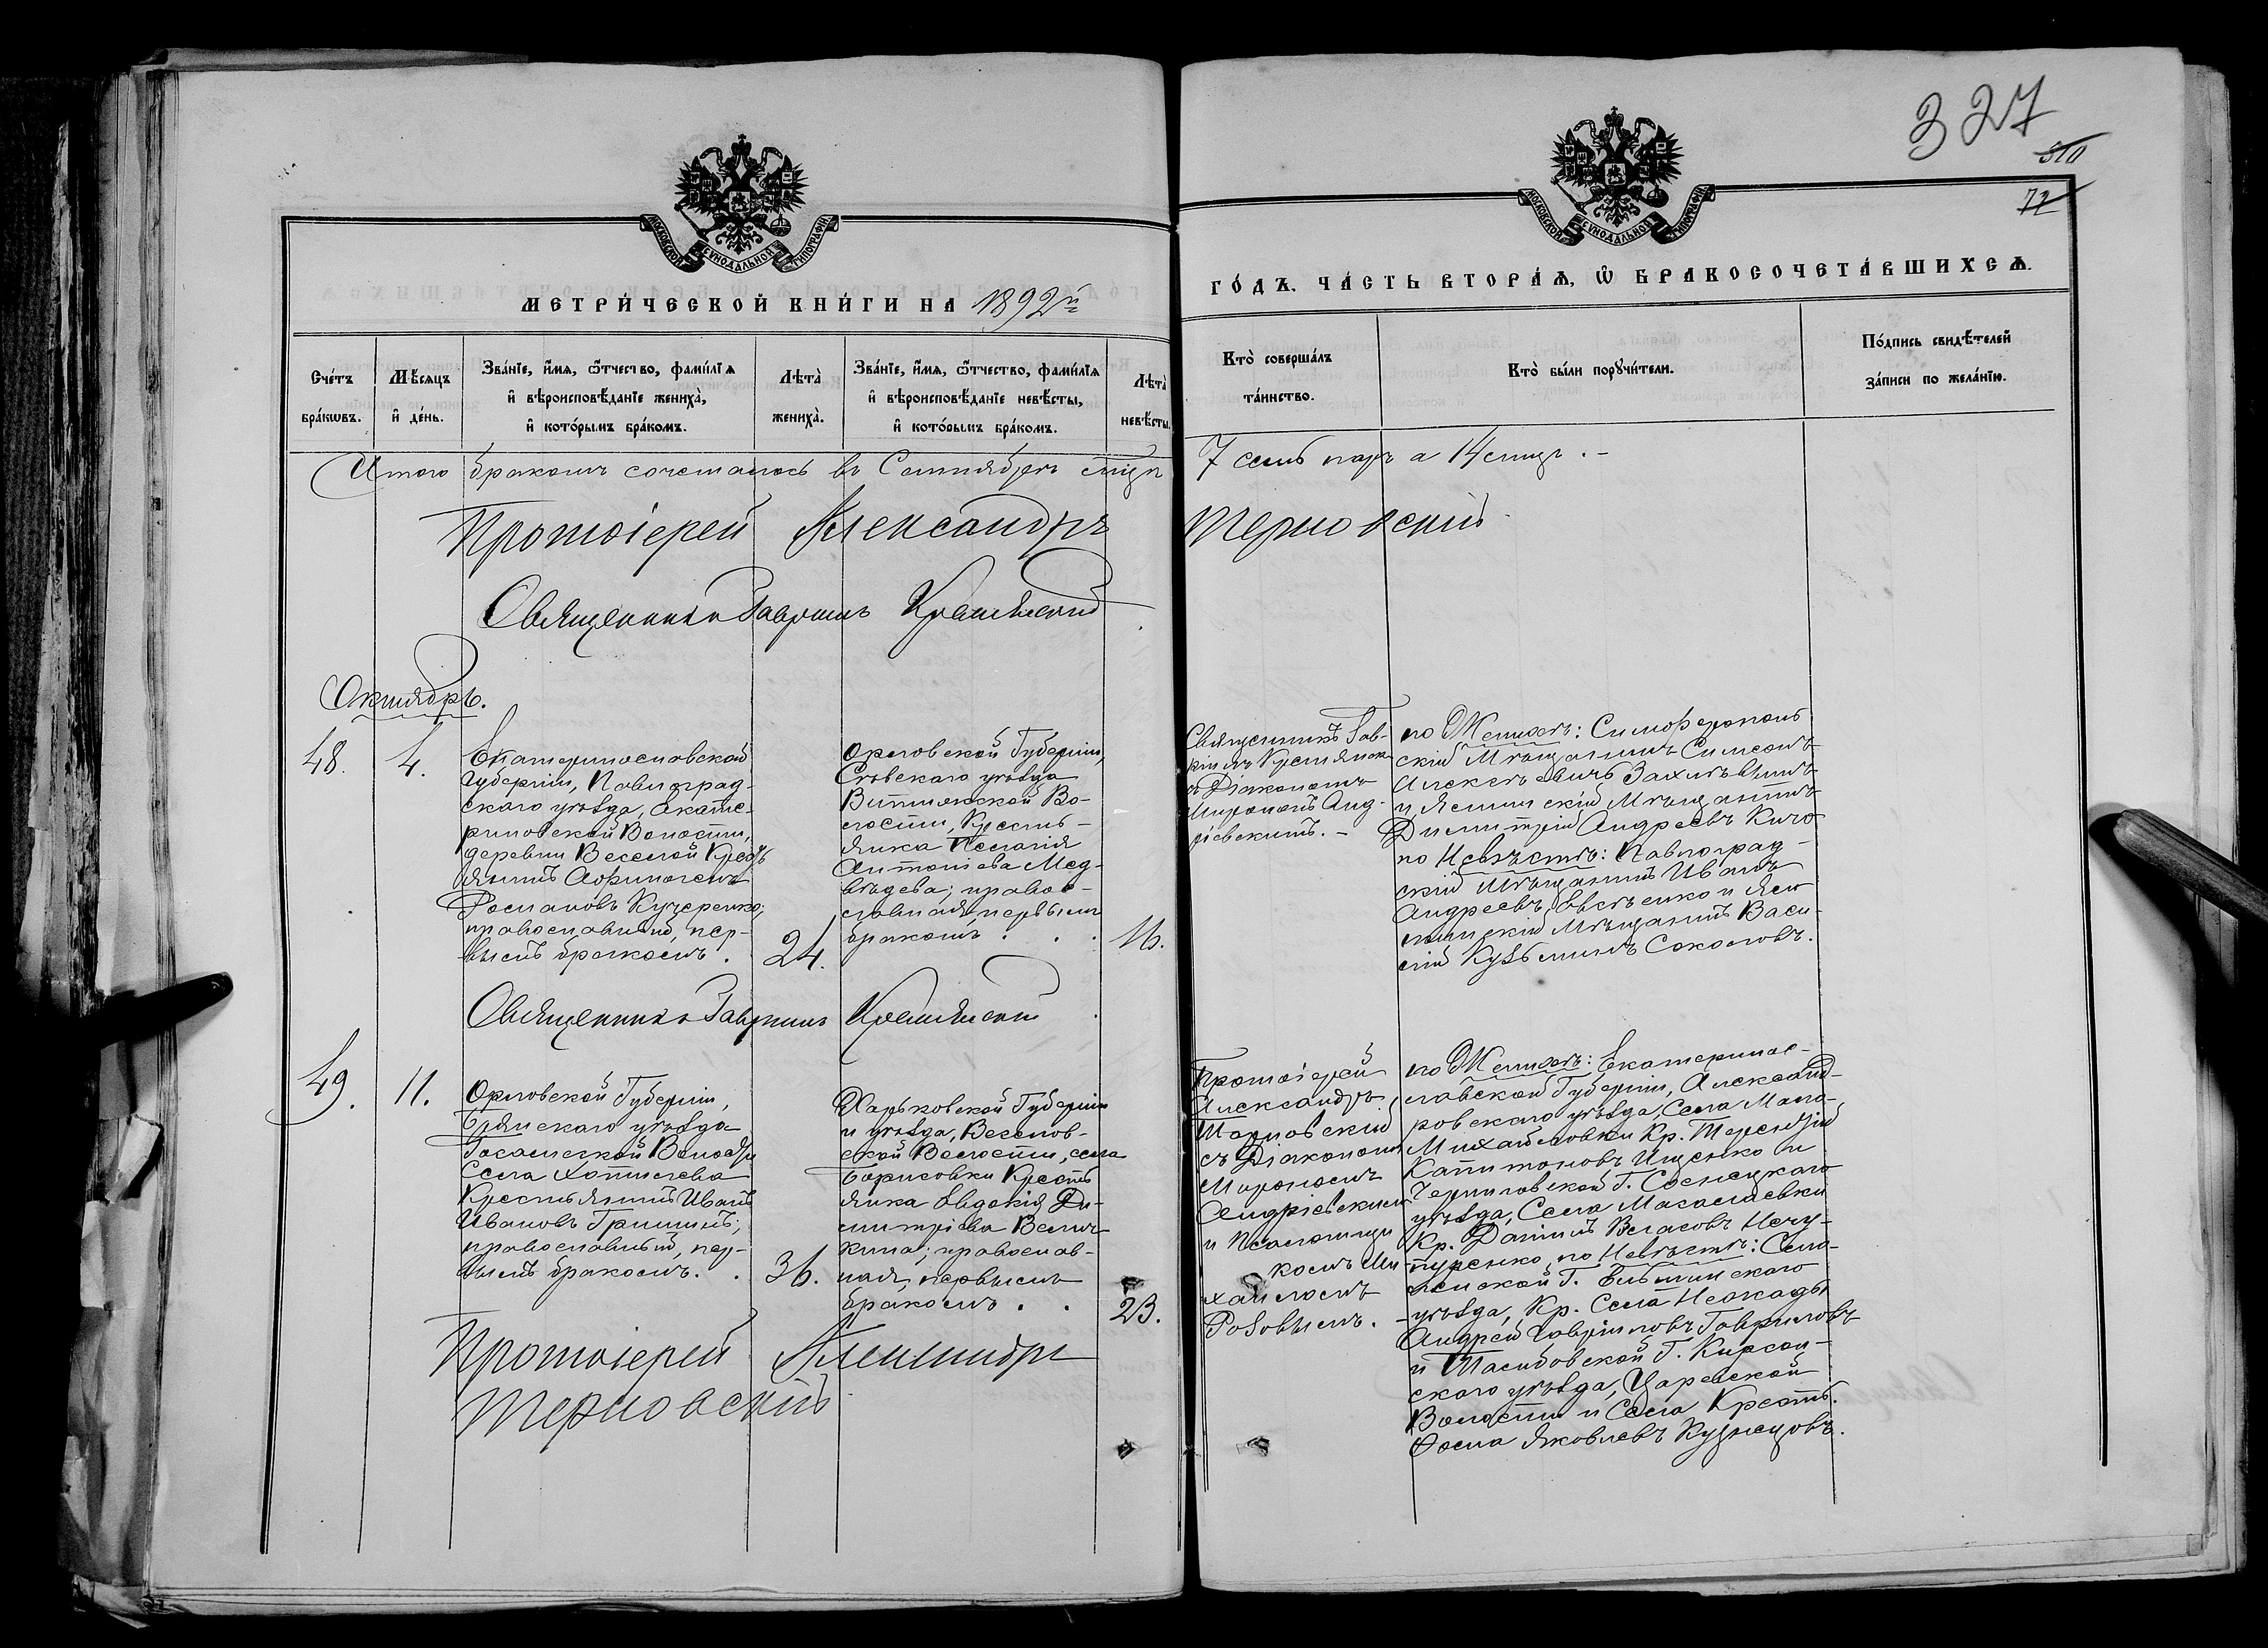 327
510
72
МОСКОВСКОЙ СѴНОДАЛЬНОЙ ТИПОГРАФІИ
МОСКОВСКОЙ СѴНОДАЛЬНОЙ ТИПОГРАФІИ
МЕТРИ́ЧЕСКОЙ КНИ́ГИ НА 1892й
ГО́ДЪ. ЧА́СТЬ ВТОРА́Ѧ, Ѡ҆ БРАКОСОЧЕТА́ВШИХСѦ.
Сче́тъ
бра́кѡвъ.
Мѣ́сѧцъ
и҆ де́нь.
Зва́нїе, и҆́мѧ, ѻ҆́тчество, фами́лїѧ
и҆ вѣроисповѣ́данїе жениха̀,
и҆ кото́рымъ бра́комъ.
Лѣта̀
жениха̀.
Зва́нїе, и҆́мѧ, ѻ҆́тчество, фами́лїѧ
и҆ вѣроисповѣ́данїе невѣ́сты,
и҆ кото́рымъ бра́комъ.
Лѣта̀
невѣ́сты.
Кто̀ соверша́лъ
та́инство.
Кто̀ бы́ли порꙋчи́тели.
По́дпись свидѣ́телей
за́писи по жела́нїю.
Итого бракомъ сочеталось въ Сентябрѣ мцѣ
7 семь паръ а 14 лицъ. -
Протоіерей Александръ Терновскій
Священникъ Гавріилъ
Октябрь.
48.
4.
Екатеринославской
губерніи, Павлоград-
скаго уѣзда, Екате-
риновской Волости,
деревни Веселой Кресть
янинъ
Романовъ Кучеренко;
православный, пер-
вымъ бракомъ.
24.
Орловской Губерніи,
Сѣвскаго уѣзда
Во-
лости, Кресть-
янка Пелагія
Антоніева Мед-
вѣдева; право-
славная, первымъ
бракомъ . . .
16.
Священникъ Гав-
ріилъ
съ Діакономъ
Мирономъ Анд-
ріевскимъ. -
по Женихѣ: Симферополь-
скій Мѣщанинъ Симеонъ
Алексѣевичъ
и Мѣщанинъ
Димитрій Андреевъ
по Невѣстѣ: Павлоград-
скій мѣщанинъ Иванъ
Андреевъ Евсѣенко и
Мѣщанинъ Васи-
лій Кузьминъ Соколовъ.
Священникъ Гавріилъ
49.
11.
Орловской Губерніи,
Брянскаго уѣзда
Волости
Села Хотылева
Крестьянинъ Иванъ
Ивановъ Гришинъ;
православный, пер-
вымъ бракомъ. .
36.
Харьковской Губерніи
и уѣзда, Веселов-
ской Волости, села
Борисовки Кресть
янка Евдокія Ди-
митріева Велич-
кина; православ-
ная, первымъ
бракомъ . .
23.
Протоіерей
Александръ
Терновскій
съ Діакономъ
Мирономъ
Андріевскимъ
и Псаломщи
комъ Ми
хаиломъ
Розовымъ.
по Женихѣ: Екатерино-
славской Губерніи, Александ-
ровскаго уѣзда, Села Мало-
Михайловки Кр. Терентій
Капитоновъ Ищенко и
Черниговской Г. Сосницкаго
уѣзда, Села
Кр. Даніилъ Власовъ Нечи-
пуренко, по Невѣстѣ:
уѣзда, Кр. Села
Андрей Гавриловъ Гавриловъ
и Тамбовской Г. Кирсан-
скаго уѣзда, Царевской
Волости и Села Кресть.
Фома Яковлевъ Кузнецовъ.
Протоіерей Александръ
Терновскій